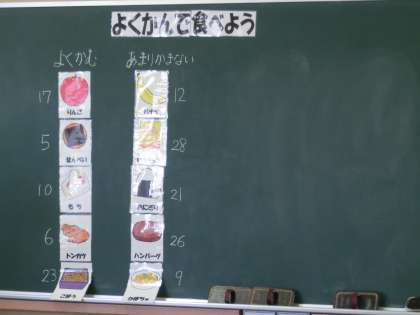 よくかんで食べよう
よくかむ
あまりかまない
17 りんご
12 バナナ
5 せんべい
28
10 もち
21 おにぎり
6 トンカツ
26 ハンバーグ
23 ごぼう
9 かぼちゃ